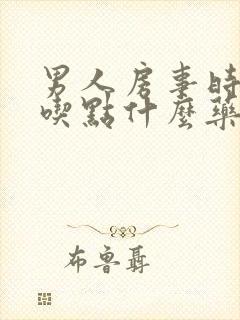 男人房事时
喫點什麼藥
布鲁聶